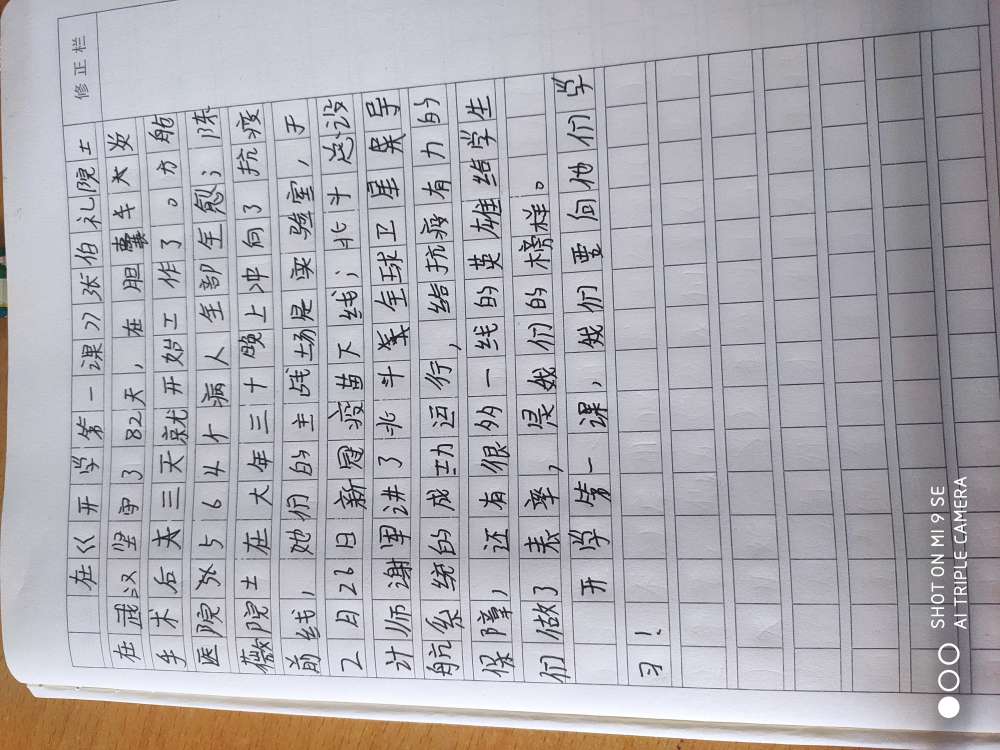 修正栏
在《开学第一课》张伯礼院士
在武汉坚守了82天，在胆囊手术
手术后 三天就开始工作了。方舱
医院 564个病人全部全愈；陈
薇院士在大年三十晚上冲向了抗疫
前线，她们的主战场是实验室，于
2月26日新冠疫苗下线；北斗总设
计师谢军讲了北斗 全球卫星导
航系统的成功运行，给抗疫有力的
保障，还有很多一线的英雄给学生
们做了表率，是我们的榜样。
开学第一课，我们要向他们学
习！
SHOT ON MI 9 SE
AI TRIPLE CAMERA